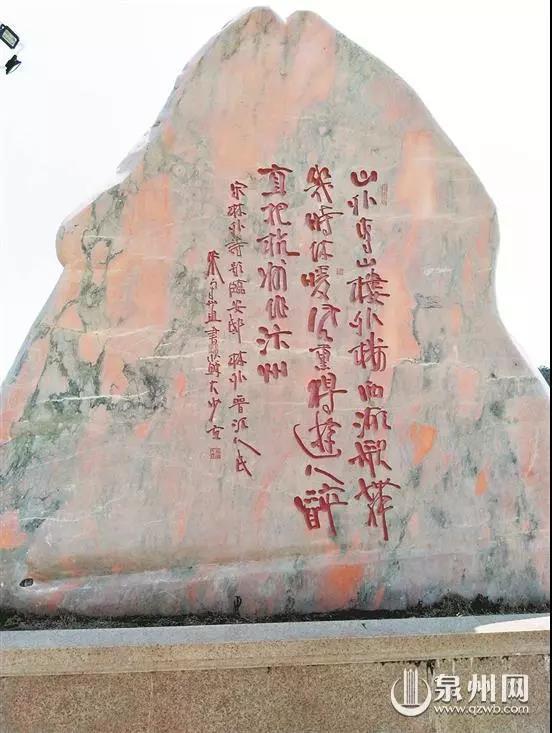 山外青山樓外樓西湖歌舞
幾時休暖風熏得遊人醉
直把杭州作汴州
宋林外詩題臨安邸 林外晋江人氏
書
泉州网
www.qzwb.com